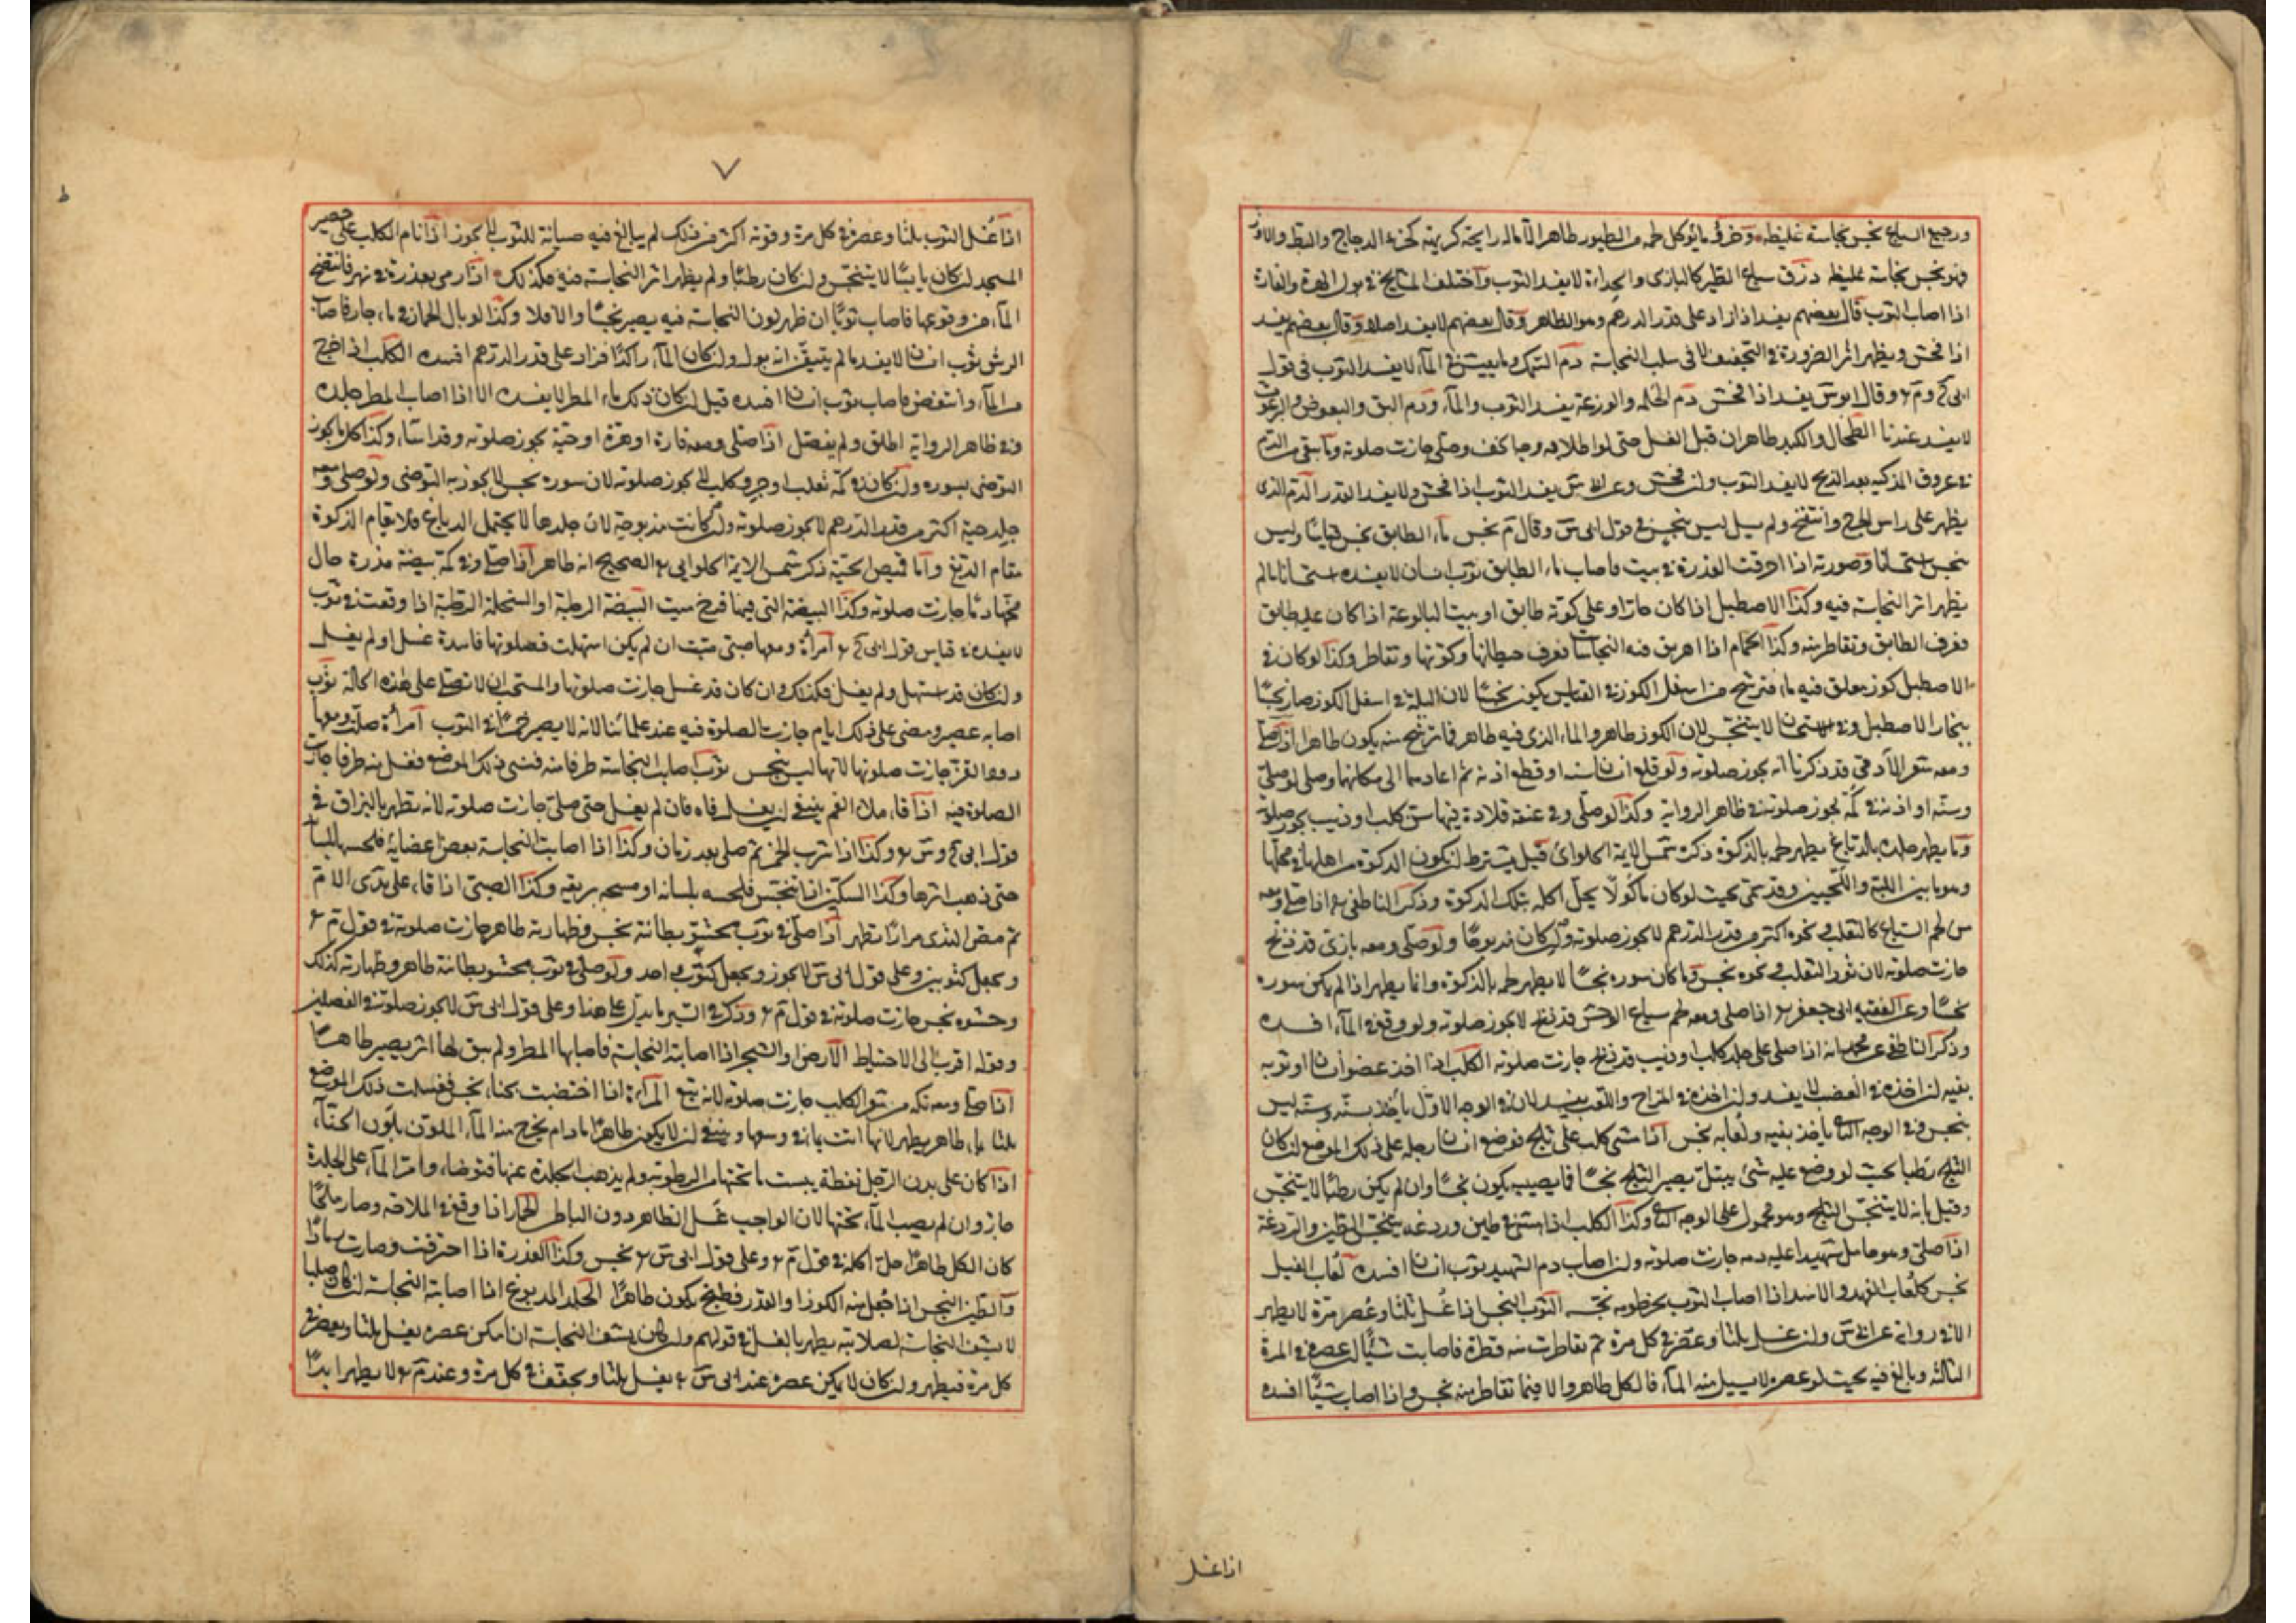 ورجيع السباع نجس نجاسة غليظة وخرؤ ما يؤكل لحمه من الطيور طاهر الا ماله رايحة كريهة كخرء الدجاج والبط والاوز
فهو نجس نجاسة غليظة درق سباع الطير كالبازى والحداءة لا يفسد الثوب واختلف المشايخ فى بول الهرة والفارة
اذا اصاب الثوب قال بعضهم يفسد اذا زاد على قدر الدرهم وهو الظاهر وقال بعضهم لا يفسد اصلا وقال بعضهم يفسد
اذا فحش ويظهر اثر الضرورة فى التخفيف لا فى سلب النجاسة دم السمك وما يعيش فى الماء لا يفسد الثوب فى قول
ابى ح وم ؏ وقال ابو س يفسد اذا فحش دم الحلمة والوزغة يفسد الثوب والماء ودم البق والبعوض والبرغوث
لا يفسد عندنا الطحال والكبد طاهران قبل الغسل حتى لو اطلا به وجه الخف وصلى جازت صلوته وما بقى من الدم
فى عروق المذكية بعد الذبح لا يفسد الثوب وان فحش وعن ابى س يفسد الثوب اذا فحش ولا يفسد القدر الدم الذى
يظهر على راس الجرح وانتفخ ولم يسل ليس بنجس فى قول ابى س وقال م نجس ماء الطابق نجس قياسا وليس
بنجس استحسانا وصورته اذا احرقت العذرة فى بيت فاصاب ماء الطابق ثوب انسان لا يفسده استحسانا مالم
يظهر اثر النجاسة فيه وكذا الاصطبل اذا كان حارا وعلى كوته طابق او بيت البالوعة اذا كان عليه طابق
فعرق الطابق وتقاطر منه وكذا الحمام اذا اهريق فيه النجاسات فعرق حيطانها وكوتها وتقاطر وكذا لو كان فى
الاصطبل كوز معلق فيه ماء فترشح من اسفل الكوز فى القياس يكون نجسا لان البلة فى اسفل الكوز صار نجسا
ببخار الاصطبل وفى الاستحسان لا يتنجس لان الكوز طاهر والماء الذى فيه طاهر فما ترشح منه يكون طاهرا اذا صلى
ومعه شعر الآدمى قد ذكرنا انه يجوز صلوته ولو قلع انسان سنه او قطع اذنه ثم اعادهما الى مكانهما وصلى او صلى
وسنه او اذنه فى كمه يجوز صلوته فى ظاهر الرواية وكذا لو صلى وفى عنقه قلادة فيها سن كلب او ذيب يجوز صلوته
وما يطهر جلده بالدباغ يطهر لحمه بالذكوة ذكره شمس الايمة الحلوائ قيل يشترط ان يكون الذكوة من اهلها فى محلها
وهو ما بين اللبة واللحيين وقد سمى بحيث لو كان ماكولا يحل اكله بتلك الذكوة وذكر الناطفى ؏ اذا صلى ومعه
من لحم السباع كالثعلب ونحوه اكثر من قدر الدرهم لا يجوز صلوته وان كان مذبوحا ولو صلى ومعه بازى قد ذبح
جازت صلوته لان سؤر الثعلب ونحوه نجس وما كان سوره نجسا لا يطهر لحمه بالذكوة وانما يطهر اذا لم يكن سوره
نجسا وعن الفقيه ابى جعفر ؏ اذا صلى ومعه لحم سباع الوحش قد ذبح لا يجوز صلوته ولو وقع فى الماء افسده
وذكر الناطفى عن محمد انه اذا صلى على جلد كلب او ذيب قد ذبح جازت صلوته الكلب اذا اخذ عضو انسان او ثوبه
بفيه ان اخذه فى الغضب لا يفسد وان اخذه فى المزاح واللعب يفسد لان فى الوجه الاول ياخذ بسنه وسنه ليس
بنجس وفى الوجه الثانى ياخذ بفيه ولعابه نجس اذا مشى كلب على ثلج فوضع انسان رجله على ذلك الموضع ان كان
الثلج رطبا بحيث لو وضع عليه شئ يبتل يصير الثلج نجسا فما يصيبه يكون نجسا وان لم يكن رطبا لا يتنجس
وقيل بانه لا يتنجس الثلج وهو محمول على الوجه الثانى وكذا الكلب اذا مشى فى طين وردغة يتنجس الطين والردغة
اذا صلى وهو حامل شهيدا عليه دمه جازت صلوته وان اصاب دم الشهيد ثوب انسان افسده لعاب الفيل
نجس كلعاب الفهد والاسد اذا اصاب الثوب بخرطومه نجسه الثوب النجس اذا غسل ثلثا وعصر مرة لا يطهر
الا فى رواية عن ابى س وان غسل ثلثا وعصر فى كل مرة ثم تقاطرت منه قطرة فاصابت شيئا ان عصر فى المرة
الثالثة وبالغ فيه بحيث لو عصر لا يسيل منه الماء فالكل طاهر والا فما تقاطر منه نجس واذا اصاب شيئا افسده
اذا غسل
٧
اذا غسل الثوب ثلثا وعصر فى كل مرة وقوته اكثر من ذلك لم يبالغ فيه صيانة للثوب لا يجوز اذا نام الكلب على حصير
المسجد ان كان يابسا لا يتنجس وان كان رطبا ولم يظهر اثر النجاسة فيه فكذلك اذا رمى بعذرة فى نهر فانتضح
الماء من وقوعها فاصاب ثوبا ان ظهر لون النجاسة فيه يصير نجسا والا فلا وكذا لو بال الحمار فى ماء جار فاصاب
الرش ثوب انسان لا يفسد مالم يتيقن انه بول وان كان الماء راكدا فزاد على قدر الدرهم افسده الكلب اذا خرج
من الماء وانتفض فاصاب ثوب انسان افسده قيل ان كان ذلك ماء المطر لا يفسده الا اذا اصاب المطر جلده
وفى ظاهر الرواية اطلق ولم يفصل اذا صلى ومعه فارة او هرة او حية يجوز صلوته وقد اساء وكذا كل ما يجوز
التوضى بسوره وان كان فى كمه ثعلب او جرو كلب لا يجوز صلوته لان سوره نجس لا يجوز به التوضى ولو صلى ومعه
جلد حية اكثر من قدر الدرهم لا يجوز صلوته وان كانت مذبوحة لان جلدها لا يحتمل الدباغ فلا يقام الذكوة
مقام الدبغ واما قميص الحية ذكر شمس الايمة الحلوايى ؏ الصحيح انه طاهر اذا صلى وفى كمه بيضة مذرة حال
محها دما جازت صلوته وكذا البيضة التى فيها فرخ ميت البيضة الرطبة او السخلة الرطبة اذا وقعت فى ثوب
لا يفسده فى قياس قول ابى ح ؏ امرأة ومعها صبى ميت ان لم يكن استهلت فصلوتها فاسدة غسل او لم يغسل
وان كان قد استهل ولم يغسل فكذلك وان كان قد غسل جازت صلوتها والمستحب ان لا تصلى على هذه الحالة ثوب
اصابه عصير ومضى على ذلك ايام جازت الصلوة فيه عند علمائنا لانه لا يصير خمرا فى الثوب امرأة صلت ومعها
دود القز جازت صلوتها لانها ليس بنجس ثوب اصاب النجاسة طرفا منه فنسى ذلك الموضع فغسل منه طرفا جازت
الصلوة فيه اذا قاء ملاء الفم ينبغى ان يغسل فاه فان لم يغسل حتى صلى جازت صلوته لانه تطهر بالبزاق فى
قول ابى ح وس ؏ وكذا اذا شرب الخمر ثم صلى بعد زمان وكذا اذا اصابت النجاسة بعض اعضايه فلحسها بلسانه
حتى ذهب اثرها وكذا السكين اذا تنجس فلحسه بلسانه او مسحه بريقه وكذا الصبى اذا قاء على ثدى الام
ثم مص الثدى مرارا تطهر اذا صلى فى ثوب محشو بطانته نجس وظهارته طاهر جازت صلوته فى قول م ؏
ويجعل كثوبين وعلى قول ابى س لا يجوز ويجعل كثوب واحد ولو صلى فى ثوب محشو بطانته طاهر وظهارته كذلك
وحشوه نجس جازت صلوته فى قول م ؏ وذكر فى السير ما يدل على هذا وعلى قول ابى س لا يجوز صلوته فى الفصلين
وقوله اقرب الى الاحتياط الارض والشجر اذا اصابته النجاسة فاصابها المطر ولم يبق لها اثر يصير طاهرا
اذا صلى ومعه تكة من شعر الكلب جازت صلوته لانه تبع المرأة اذا اختضبت بحناء نجس فغسلت ذلك الموضع
ثلثا بماء طاهر يطهر لانها اتت بما فى وسعها وينبغى ان لا يكون طاهرا مادام يخرج منه الماء الملون بلون الحناء
اذا كان على بدن الرجل نفطة يبست ما تحتها من الرطوبة ولم يذهب الجلدة عنها فتوضا وامر الماء على الجلدة
جاز وان لم يصب الماء تحتها لان الواجب غسل الظاهر دون الباطن الحمار اذا وقع فى الملاحة وصار ملحا
كان الكل طاهرا حل اكله فى قول م ؏ وعلى قول ابى س ؏ نجس وكذا العذرة اذا احترقت وصارت رمادا
والطين النجس اذا جعل منه الكوز او القدر فطبخ يكون طاهرا الجلد المدبوغ اذا اصابته النجاسة ان كان صلبا
لا يشف النجاسة لصلابته يطهر بالغسل فى قولهم وان كان يشف النجاسة ان امكن عصره يغسل ثلثا ويعصر فى
كل مرة فيطهر وان كان لا يمكن عصره عند ابى س ؏ يغسل ثلثا ويجفف فى كل مرة وعند م ؏ لا يطهر ابدا